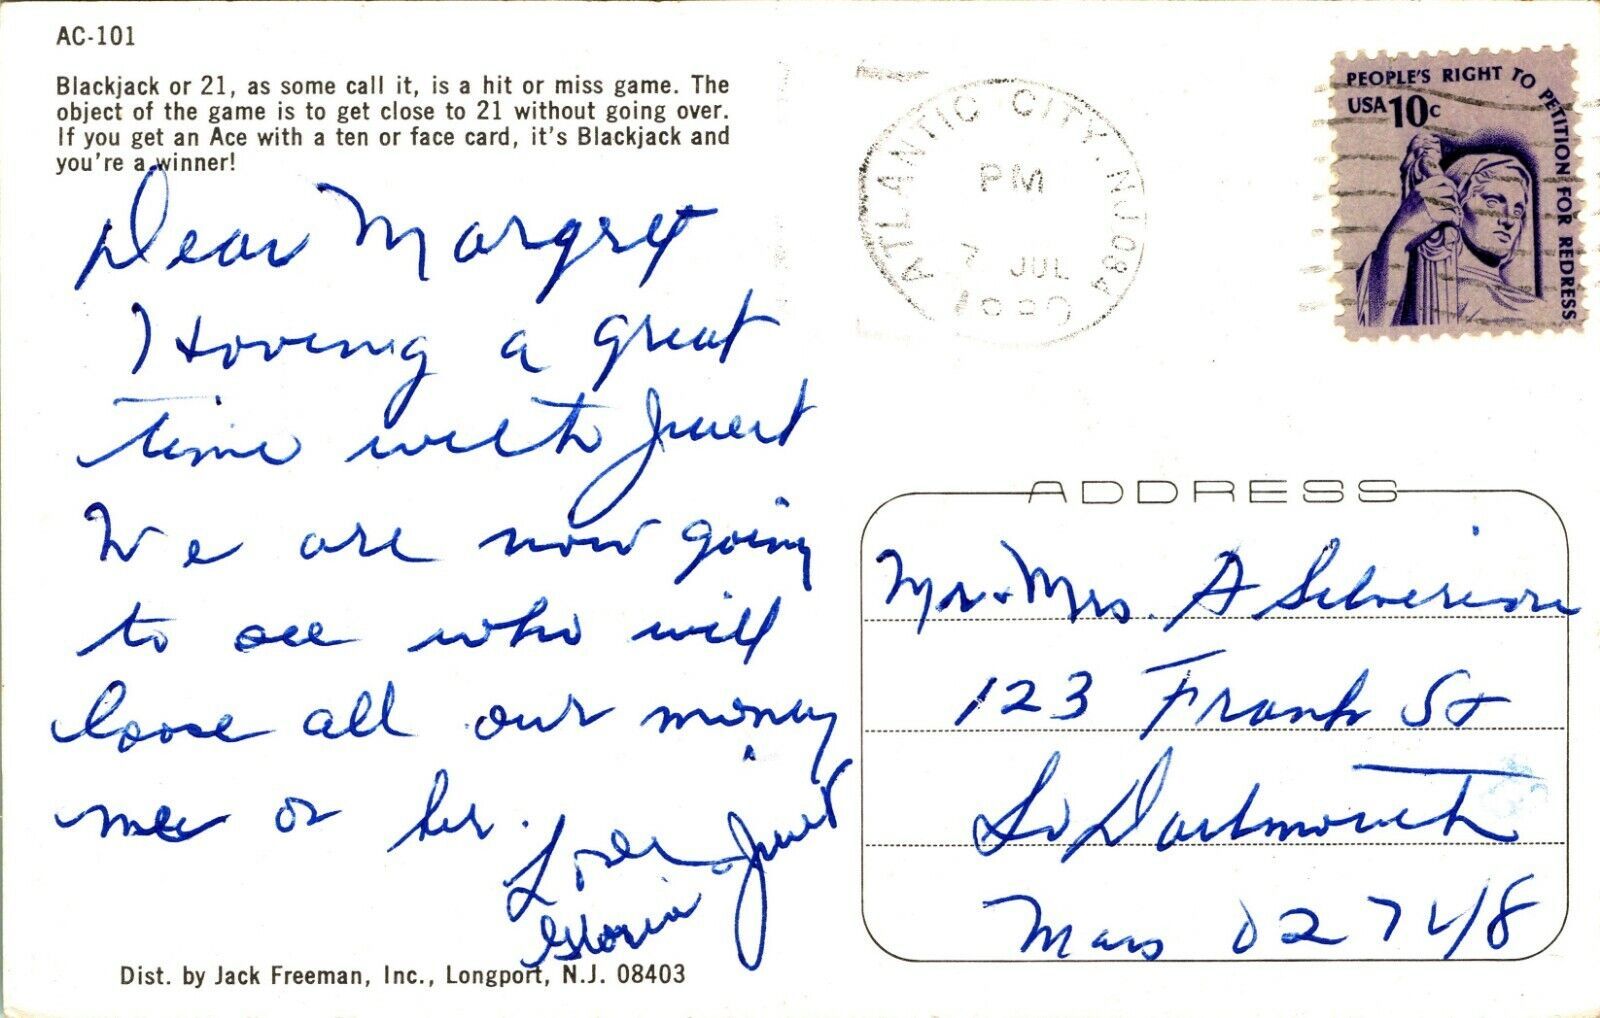 AC-101
Blackjack or 21, as some call it, is a hit or miss game. The
object of the game is to get close to 21 without going over.
If you get an Ace with a ten or face card, it's Blackjack and
you're a winner!
Dear Margret
I Having a great
time with
We are now going
to see who will
loose all our money
me or her.
Love
Gloria
Dist. by Jack Freeman, Inc., Longport, N.J. 08403
ATLANTIC CITY, NJ 084
PM
7 JUL
1980
PEOPLE'S RIGHT TO PETITION FOR REDRESS
USA 10c
ADDRESS
Mr + Mrs. A
123 Frank St
So Dartmouth
Mass 02748